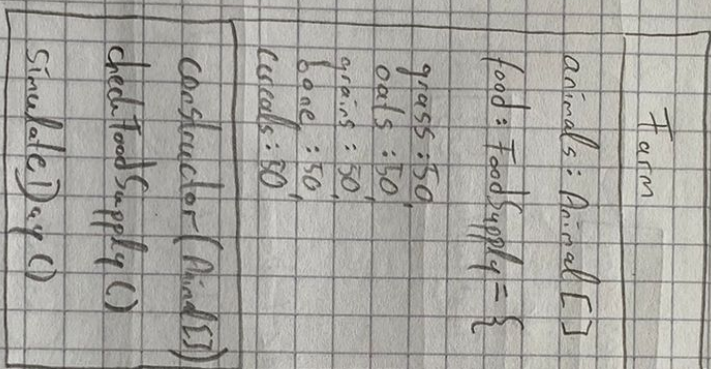 Farm
animals: Animal[]
food: FoodSupply = {
grass: 50,
oats: 50,
grains: 50,
bone: 50,
cereals: 50,
constructor(Animal[])
checkFoodSupply()
SimulateDay()